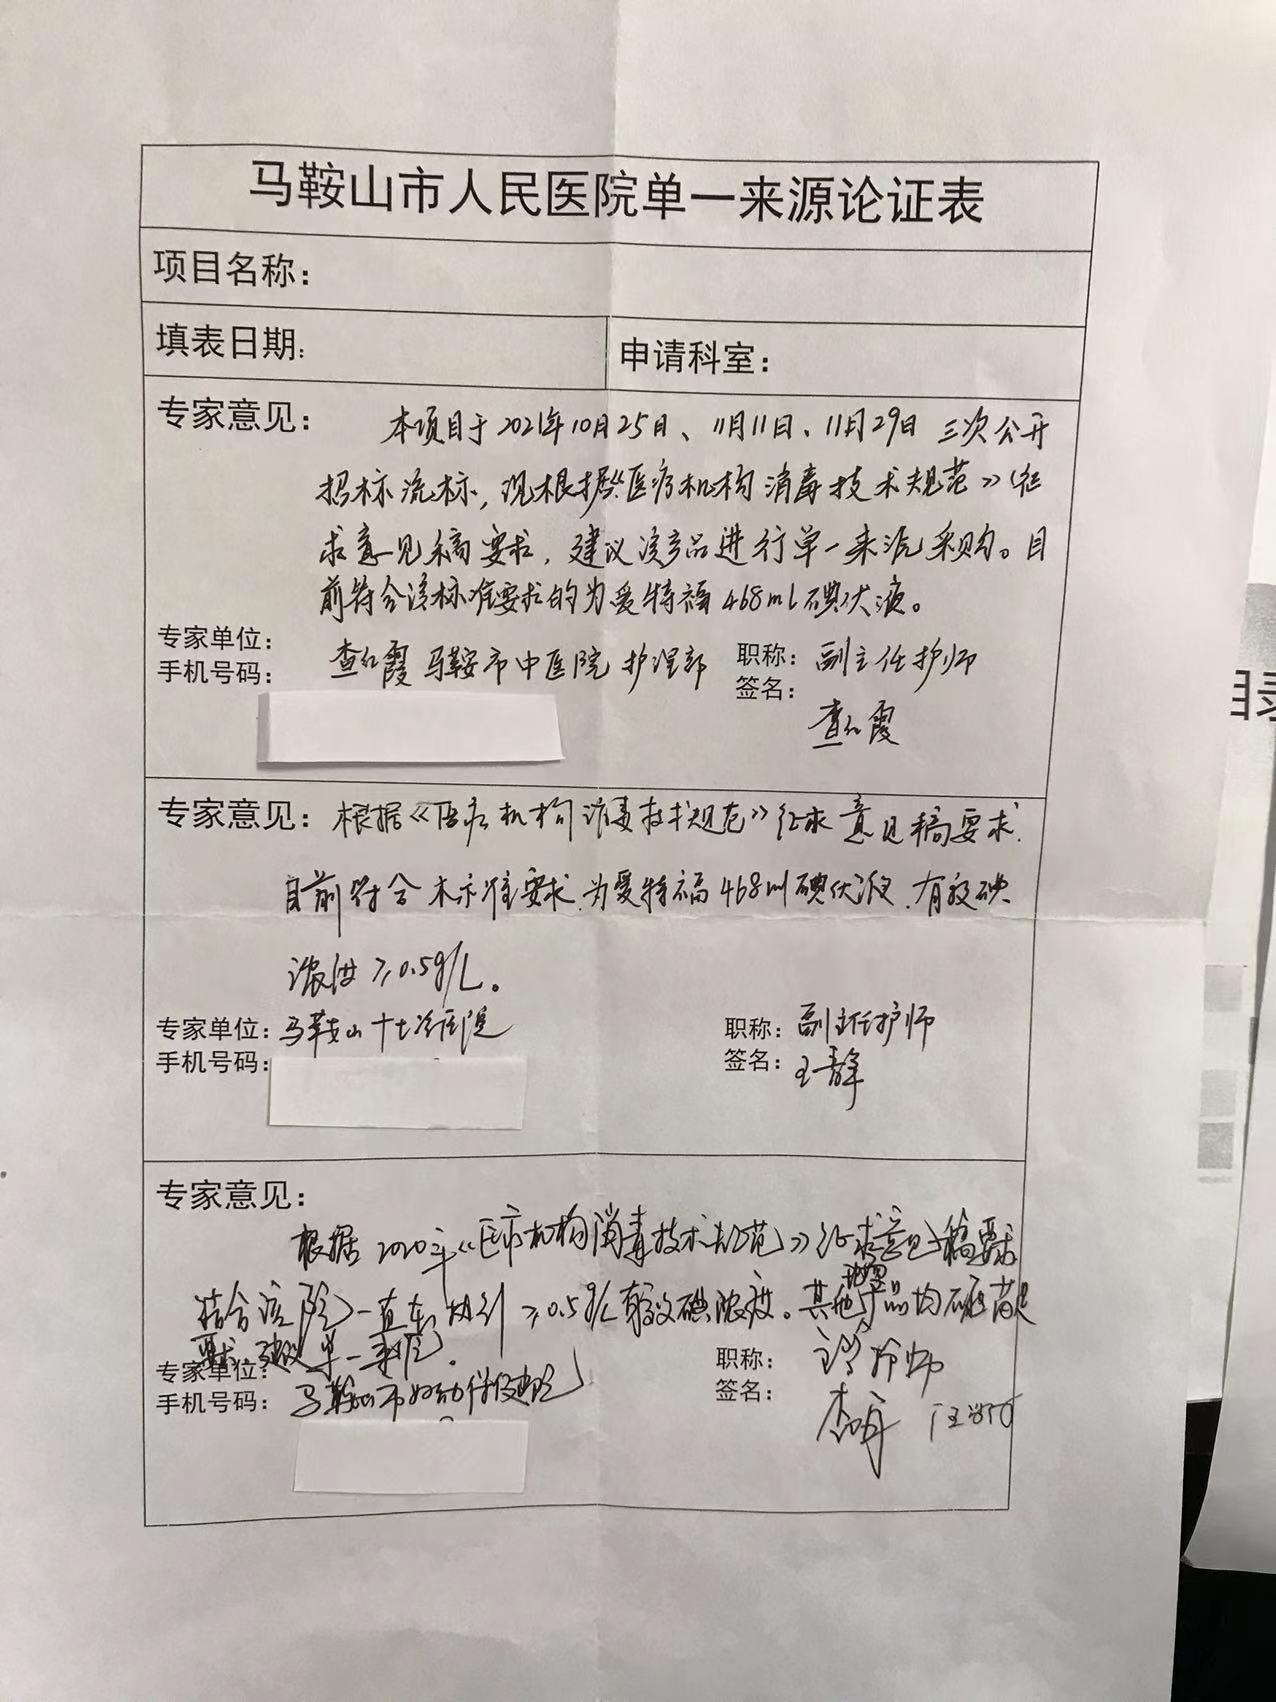 马鞍山市人民医院单一来源论证表
项目名称：
填表日期： 申请科室：
专家意见： 本项目于2021年10月25日、11月11日、11月29日三次公开
招标流标，现根据《医疗机构消毒技术规范》征
求意见稿要求，建议该产品进行单一来源采购。目
前符合该标准要求的为爱特福468ml碘伏液。
专家单位： 查红霞 马鞍市中医院 护理部 职称：副主任护师
手机号码： 签名：
查红霞
专家意见：根据《医疗机构消毒技术规范》征求意见稿要求.
目前符合本标准要求为爱特福468ml碘伏液.有效碘
浓度≥0.5g/L。
专家单位：马鞍山十七冶医院 职称：副主任护师
手机号码： 签名：王静
专家意见：
根据2020年《医疗机构消毒技术规范》征求意见稿要求
结合该院一直在执行≥0.5g/L有效碘浓度。其他产品均
建议单一来源.
专家单位： 职称：
手机号码：马鞍山市妇幼保健院 签名：
目录